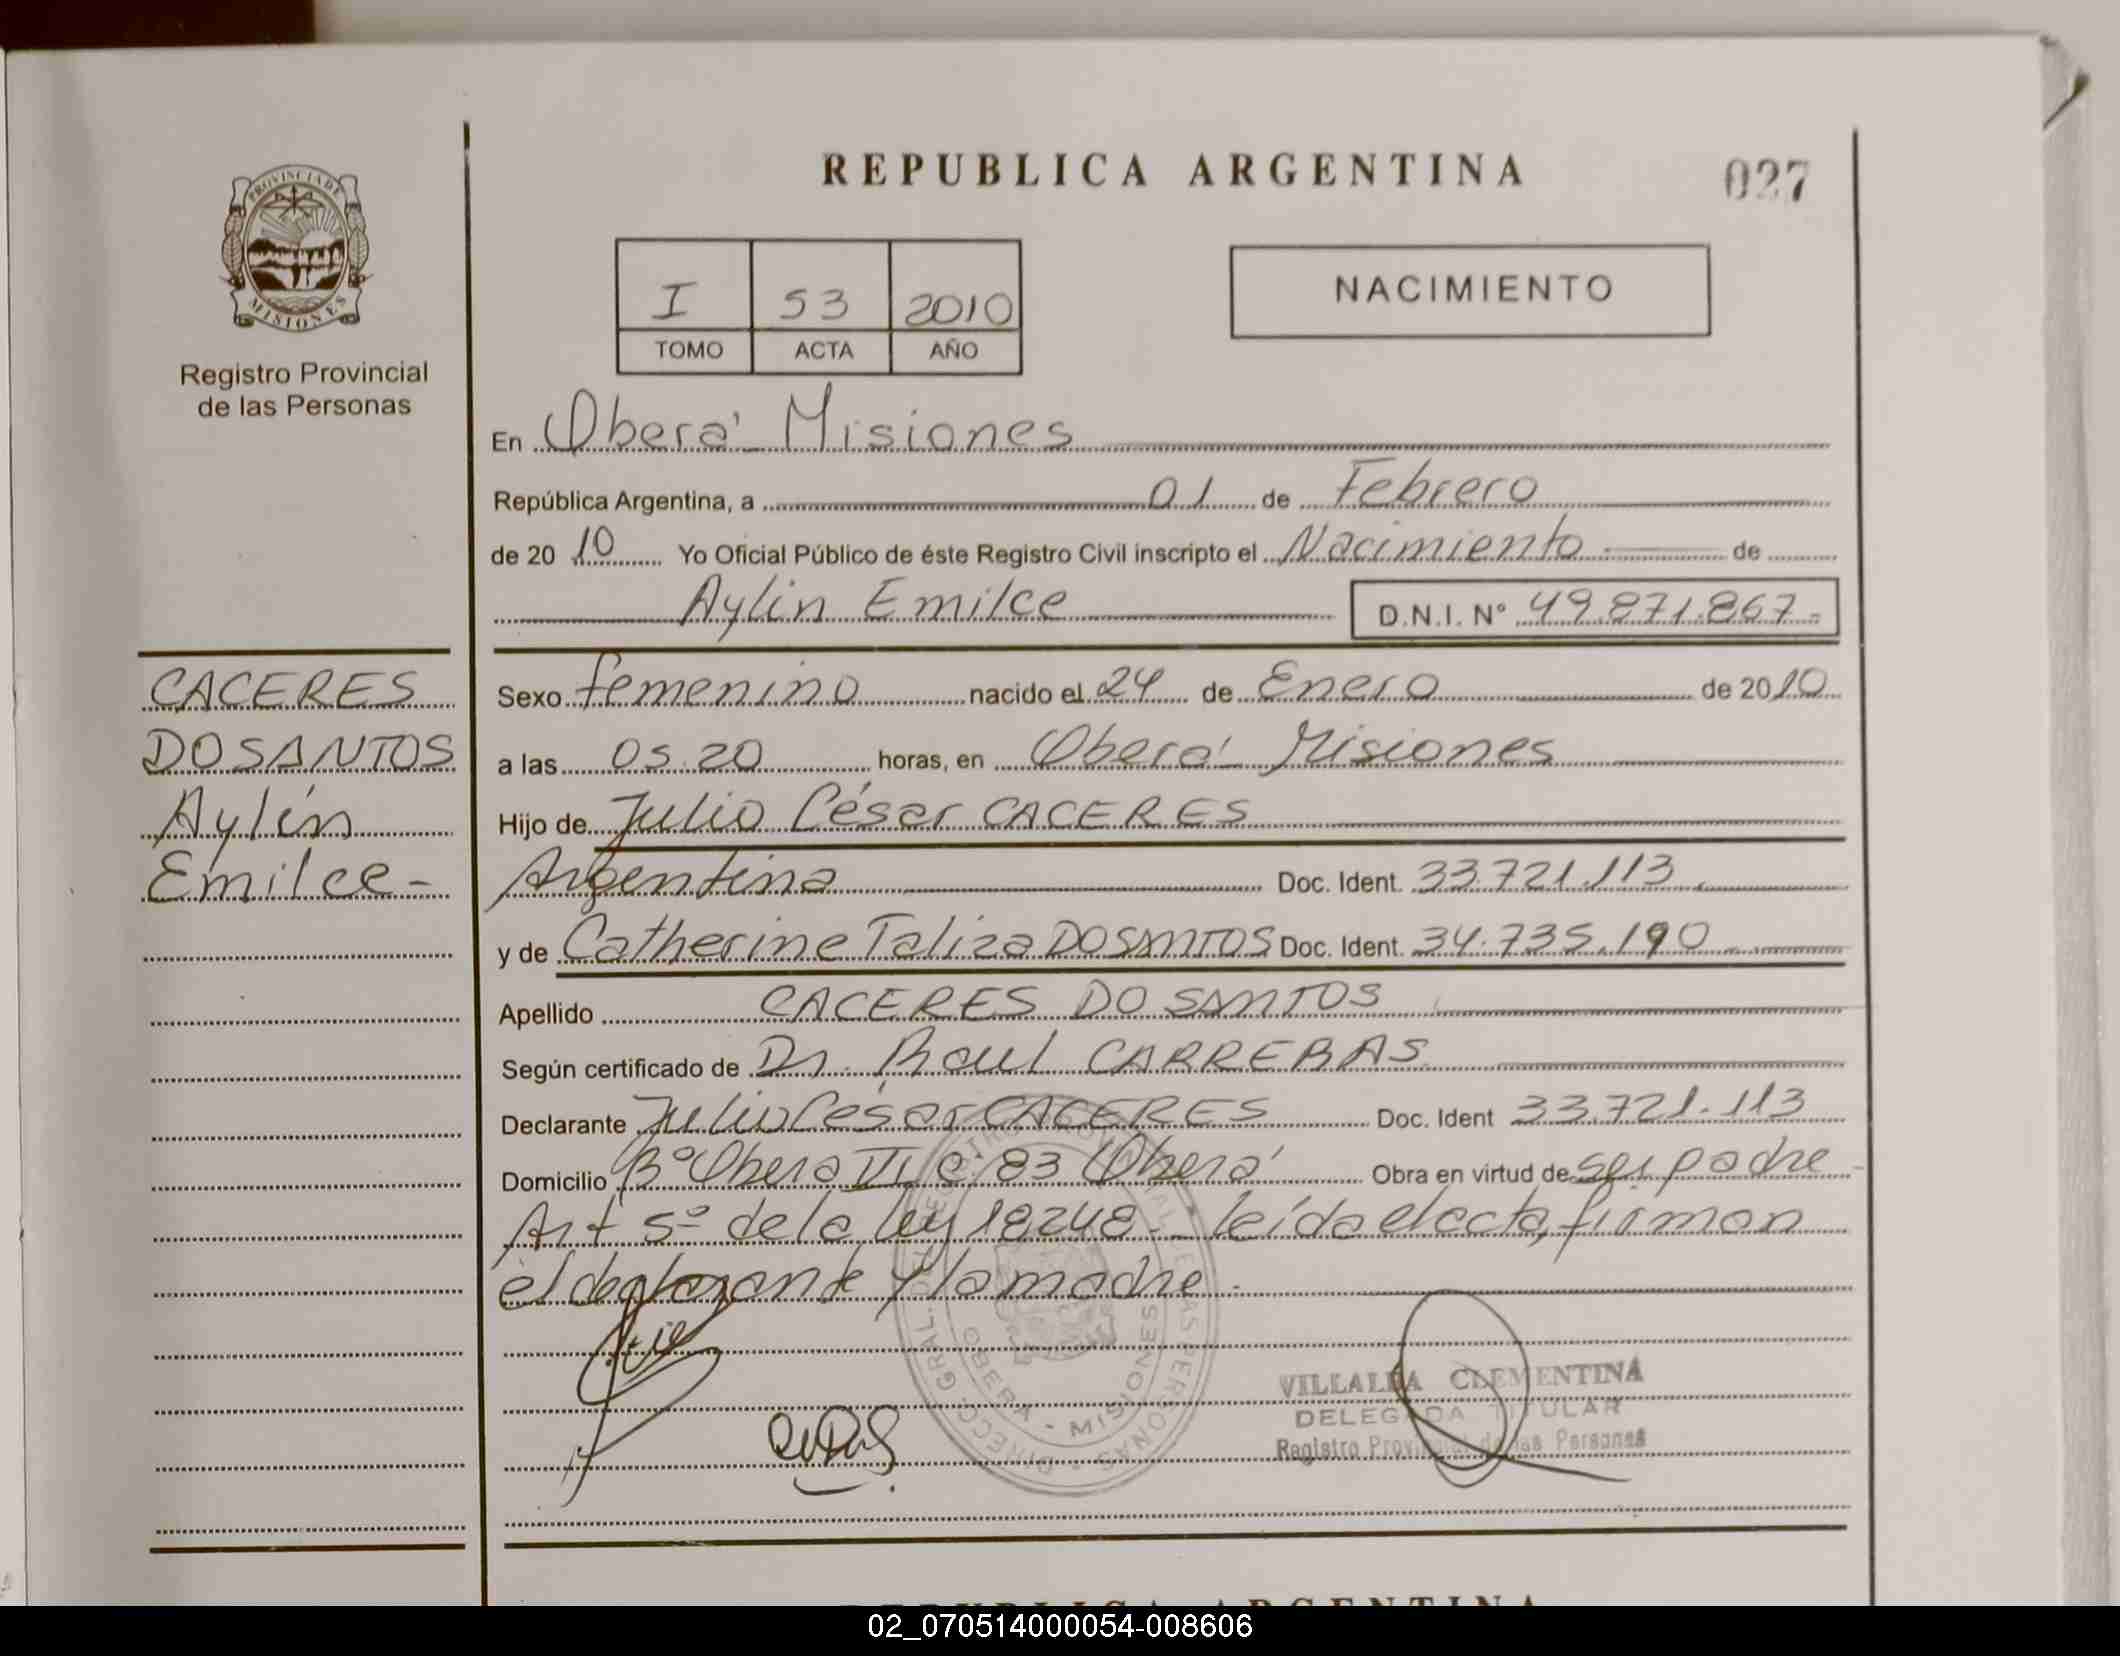 REPUBLICA ARGENTINA
027
PROVINCIA DE
MISIONES
Registro Provincial
de las Personas
I 53 2010
TOMO ACTA AÑO
NACIMIENTO
En Oberá Misiones
República Argentina, a 01 de Febrero
de 2010 Yo Oficial Público de éste Registro Civil inscripto el Nacimiento de
Aylin Emilce D.N.I. N° 49.871.867-
CACERES
DOSANTOS
Aylín
Emilce-
Sexo femenino nacido el 24 de Enero de 2010
a las 05.20 horas, en Oberá Misiones
Hijo de Julio César CACERES
Argentina Doc. Ident. 33.721.113
y de Catherine Taliza DOSANTOS Doc. Ident. 34.735.190
Apellido CACERES DO SANTOS
Según certificado de Dr. Raul CARRERAS
Declarante Julio César CACERES Doc. Ident 33.721.113
Domicilio B° Oberá VI C. 83 Oberá Obra en virtud de ser padre
Art 5º de la ley 18248. leída el acta, firman
el declarante y la madre.
OBERA - MISIONES
VILLALBA CLEMENTINA
DELEGADA TITULAR
Registro Provincial de las Personas
REPUBLICA ARGENTINA
02_070514000054-008606